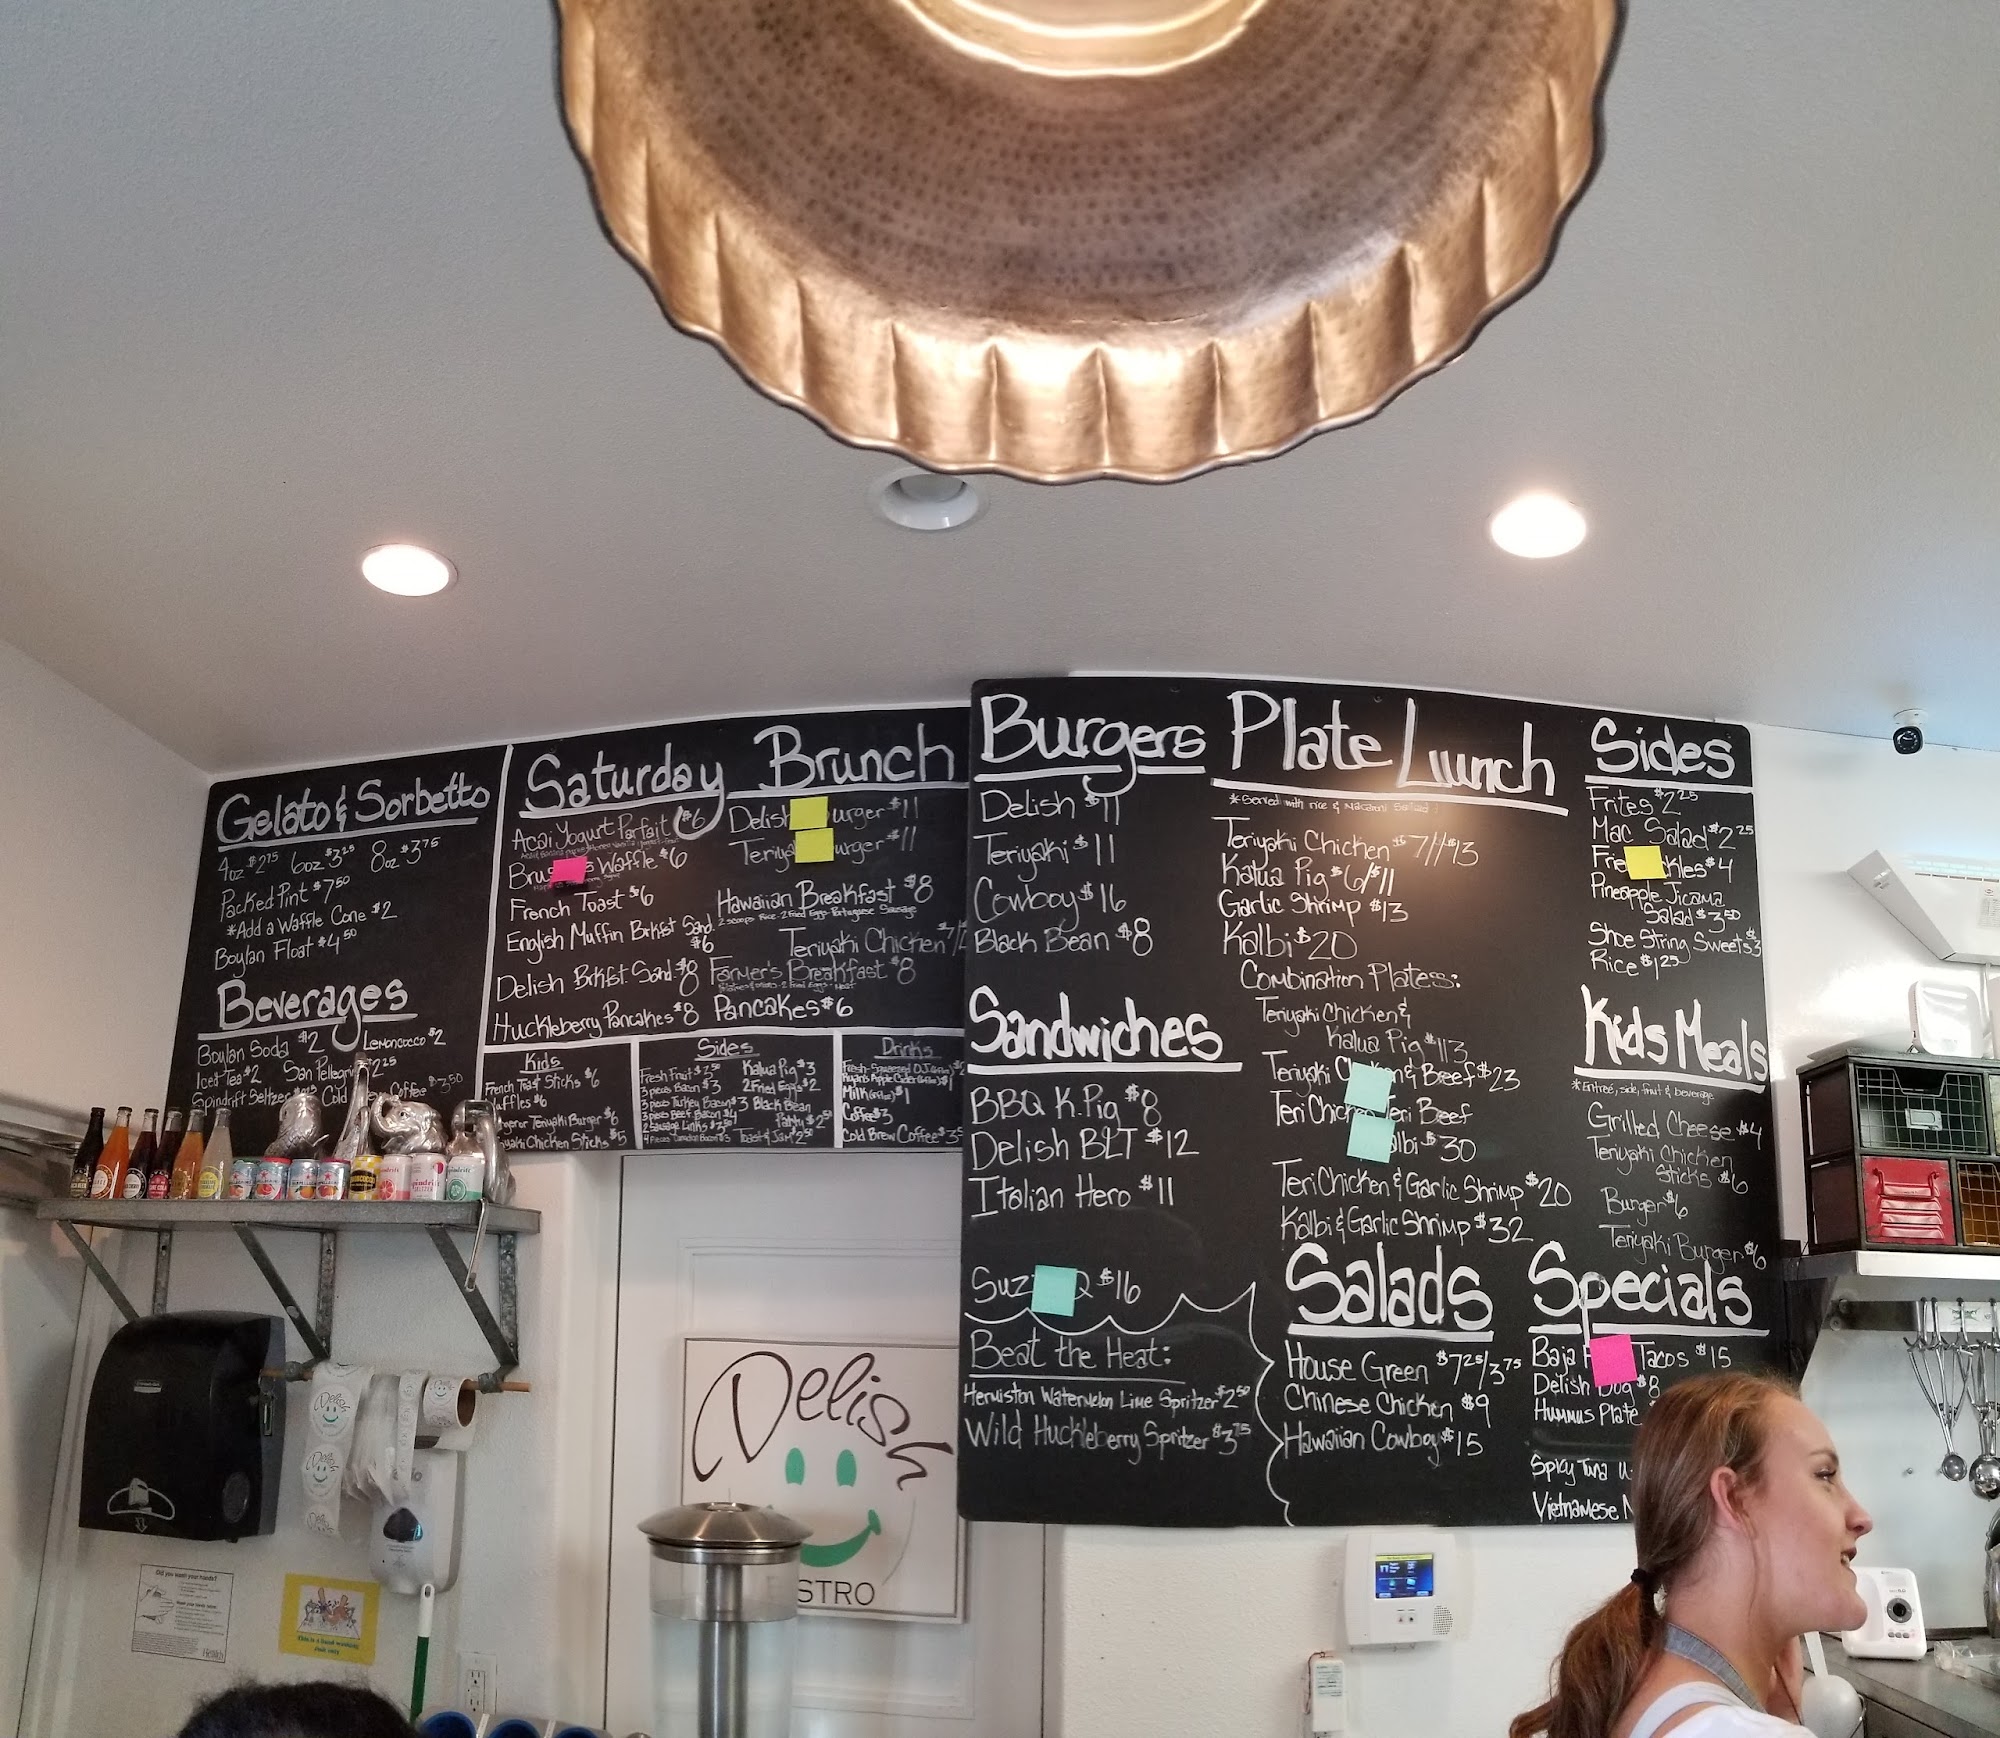 Gelato & Sorbetto
4oz $2.75 6oz $3.25 8oz $3.75
Packed Pint $7.50
*Add a Waffle Cone $2
Boylan Float $4.50
Beverages
Boylan Soda $2 Lemoncocco $2
Iced Tea $2 San Pellegrin $2.25
Spindrift Seltzer Cold Coffee $3.50
Saturday Brunch
Acai Yogurt Parfait $6
Waffle $6
French Toast $6
English Muffin Brkfst Sand. $6
Delish Brkfst. Sand. $8
Huckleberry Pancakes $8
Delish urger $11
Teriya urger $11
Hawaiian Breakfast $8
2 scoops Rice - 2 Fried Eggs - Portuguese Sausage
Teriyaki Chicken
Farmer's Breakfast $8
Pancakes $6
Kids
French Toast Sticks $6
affles $6
Teriyaki Burger $6
yaki Chicken Sticks $5
Sides
Fresh Fruit $2.50
3 pieces Bacon $3
3 pieces Turkey Bacon $3
3 pieces Beef Bacon $4
2 Sausage Links $2.50
Kalua Pig $3
2 Fried Eggs $2
Black Bean
Patty $2.50
Toast & Jam $2.50
Drinks
Fresh-Squeezed OJ
Ryan's Apple Cider
Milk $1
Coffee $3
Cold Brew Coffee $3.5
Burgers
Delish $11
Teriyaki $11
Cowboy $16
Black Bean $8
Sandwiches
BBQ K.Pig $8
Delish BLT $12
Italian Hero $11
Suz Q $16
Beat the Heat:
Hermiston Watermelon Lime Spritzer $2.50
Wild Huckleberry Spritzer $3.75
Plate Lunch
*Served with rice & Macaroni Salad
Teriyaki Chicken $7/11/13
Kalua Pig $6/$11
Garlic Shrimp $13
Kalbi $20
Combination Plates:
Teriyaki Chicken &
Kalua Pig $13
Teriyaki C n & Beef $23
Teri Chicken Teri Beef
albi $30
Teri Chicken & Garlic Shrimp $20
Kalbi & Garlic Shrimp $32
Salads
House Green $7.25/3.75
Chinese Chicken $9
Hawaiian Cowboy $15
Sides
Frites $2.25
Mac Salad $2.25
Frie ckles $4
Pineapple Jicama
Salad $3.50
Shoe String Sweets $3
Rice $1.25
Kids Meals
*Entree, side, fruit & beverage
Grilled Cheese $4
Teriyaki Chicken
Sticks $6
Burger $6
Teriyaki Burger $6
Specials
Baja F Tacos $15
Delish Dog $8
Hummus Plate
Spicy Tuna
Vietnamese
Delish
STRO
Did you wash your hands?
This is a hand washing
sink only
Delish
Delish